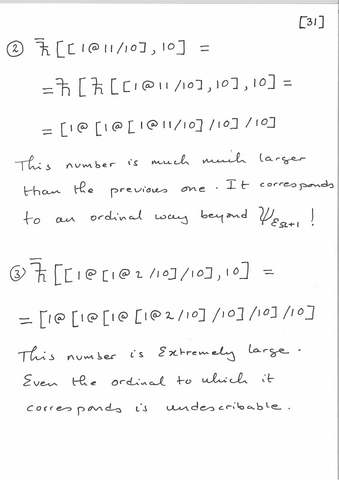 [31]
② ħ̿[[1@11/10],10] =
=ħ[ħ[[1@11/10],10],10] =
= [1@[1@[1@11/10]/10]/10]
This number is much much larger
than the previous one. It corresponds
to an ordinal way beyond Ψ_εΩ+1 !
③ ħ̿[[1@[1@2/10]/10],10] =
= [1@[1@[1@[1@2/10]/10]/10]/10]
This number is Extremely large.
Even the ordinal to which it
corresponds is undescribable.